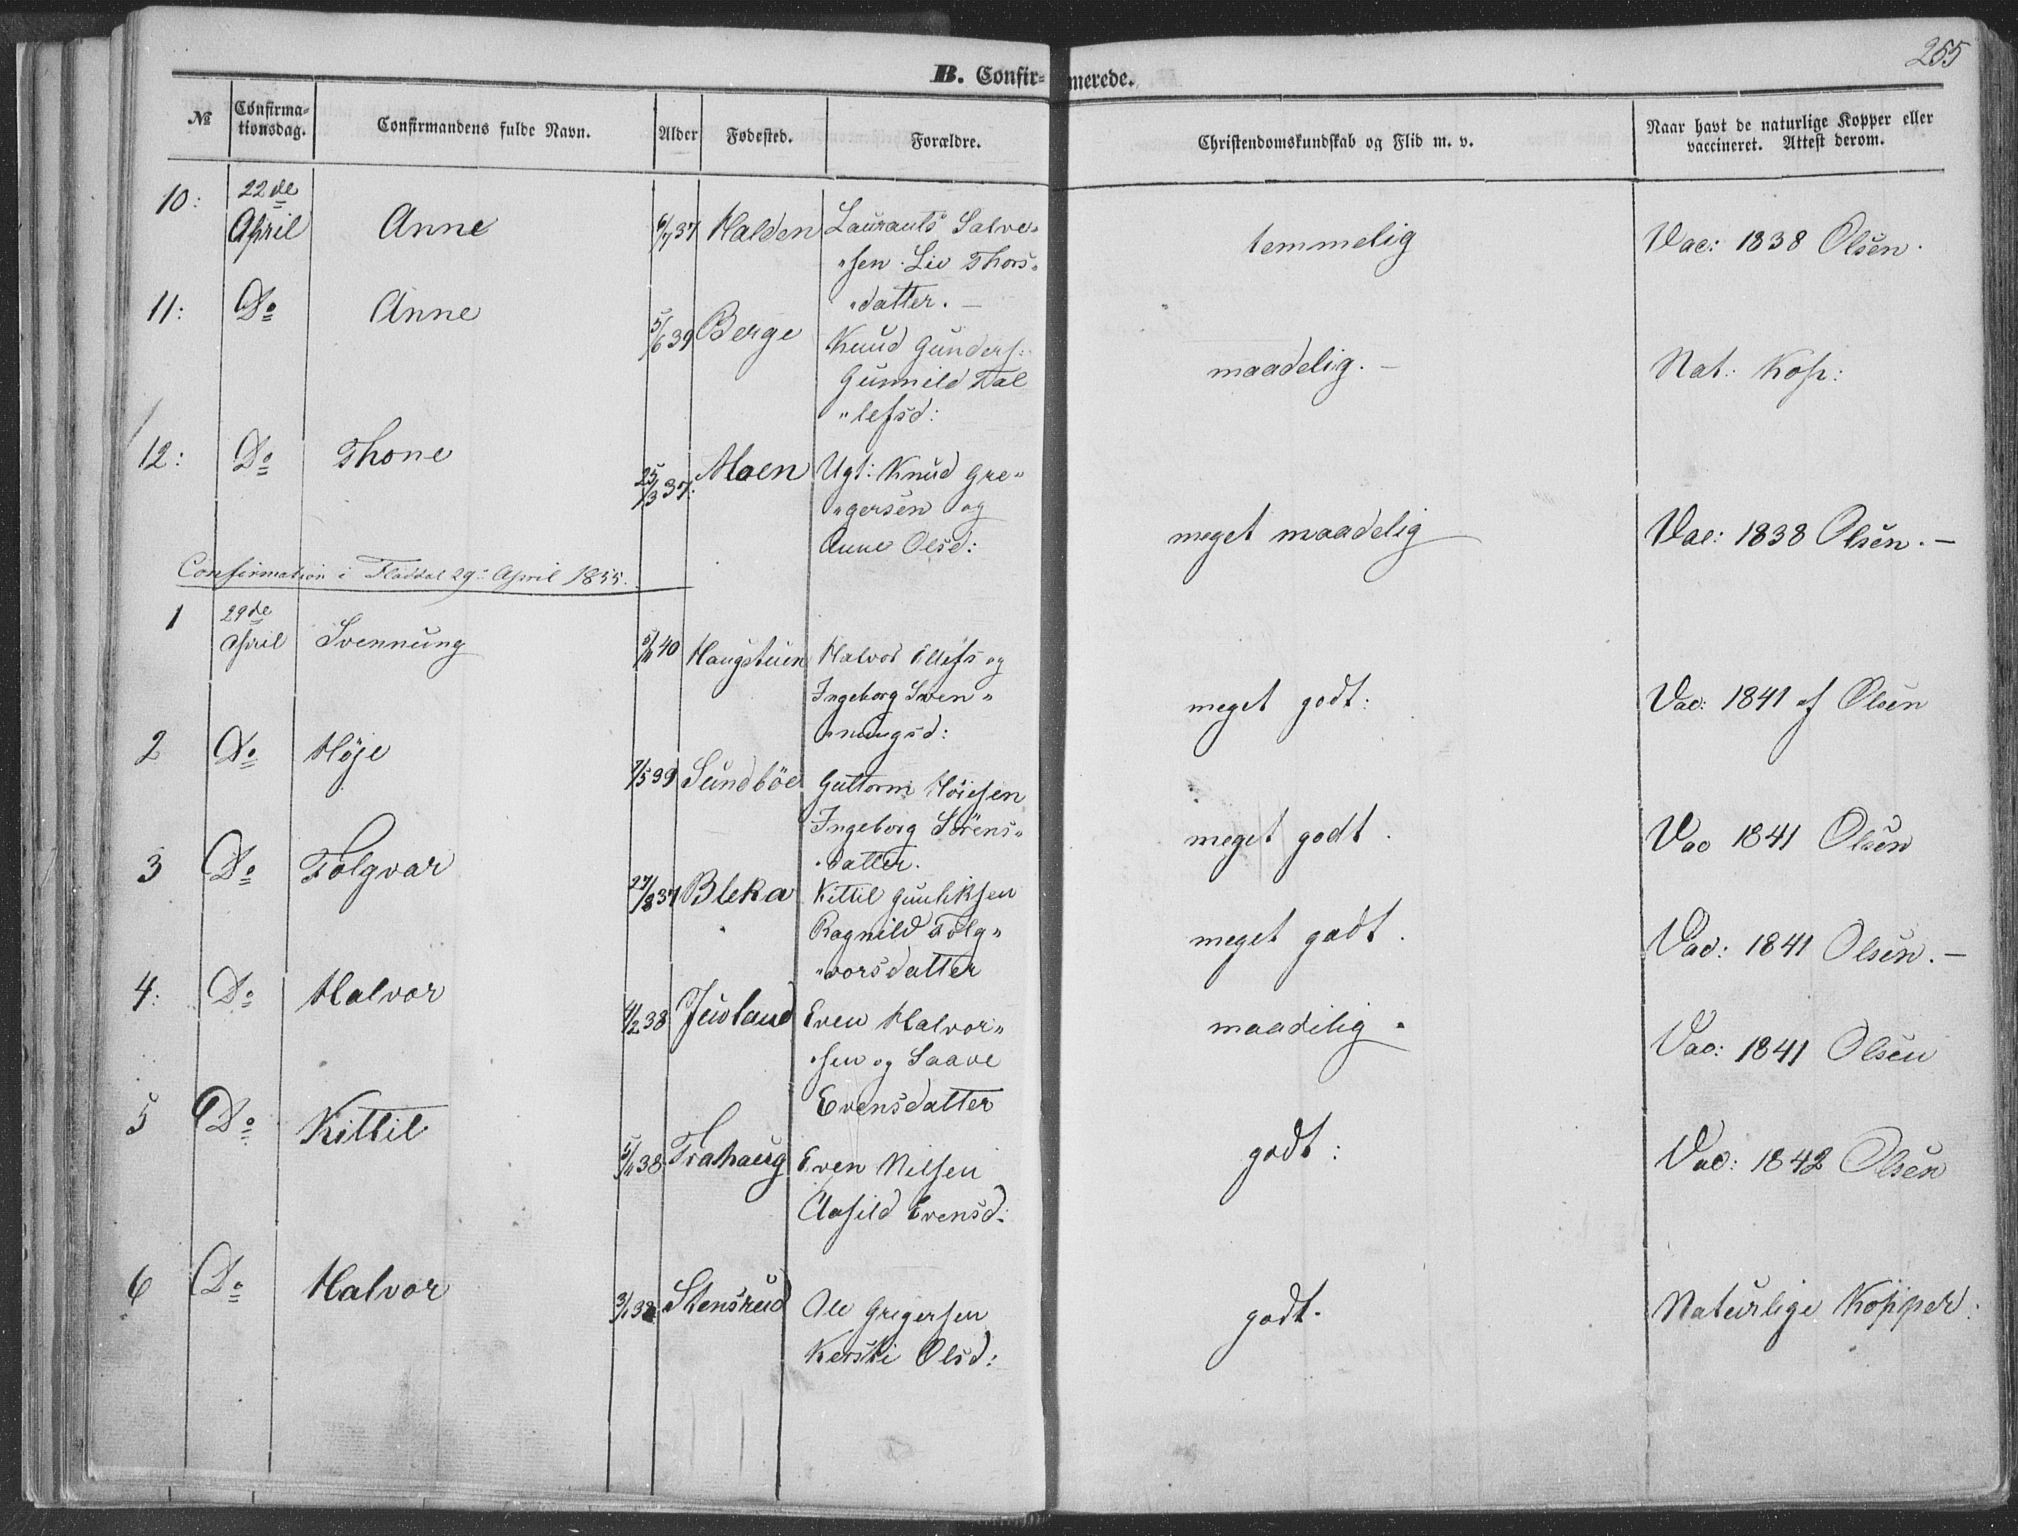 255
B. Confirmerede.
№ Confirmationsdag. Confirmandens fulde Navn. Alder Fødested. Forældre. Christendomskundskab og Flid m. v. Naar havt de naturlige Kopper eller vaccineret. Attest derom.
10: 22de April Anne 6/7 37 Halden Laurants Salve„
„sen. Liv Thors„
„datter. — temmelig Vac: 1838 Olsen.
11: Do Anne 5/6 39 Berge Knud Gunders:
Gunnild Tal
„lefsd: maadelig. — Nat: Kop:
12: Do Thone 25/3 37: Moen Ugt: Knud Gre„
„gersen og
Anne Olsd: meget maadelig Vac: 1838 Olsen. —
Confirmation i Fladdal 29: April 1855.
1 29de April Svennung 40 Haugstuen Halvor Ellefs og
Ingeborg Sven„
„nungsd: meget godt: Vac: 1841 af Olsen
2 Do Høje 7/5 39 Sundbøe Guttorm Høiesen
Ingeborg Sörens„
„datter. meget godt. Vac 1841 Olsen
3 Do Folgvar 27/8 37 Bleka Kittil Gunliksen
Ragnild Folg„
„vorsdatter meget godt. Vac: 1841 Olsen. —
4: Do Halvor 4/2 38 Juvland Even Halvor„
„sen og Saave
Evensdatter maadilig. Vac: 1841 Olsen
5 Do Kittil 38 Trahaug Even Nilsen
Aasild Evensd: godt: Vac: 1842 Olsen
6 Do Halvor 3/1 38 Stensrud Ole Gregersen
Kersti Olsd: godt. Naturlige Kopper.